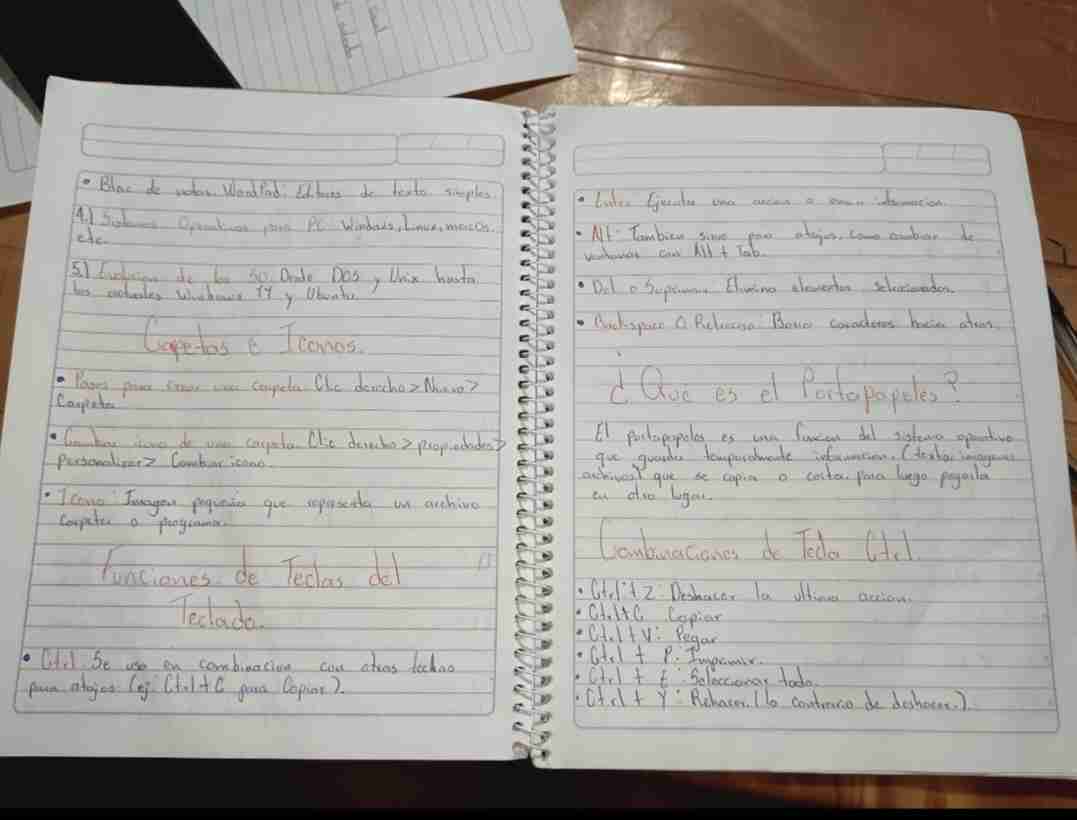 • Bloc de notas. WordPad: Editores de texto simples.
4.) Sistemas Operativos para PC: Windows, Linux, macOS.
etc.
5.) Evolucion de los SO. Desde DOS y Unix hasta
los actuales Windows 11 y Ubuntu.
Carpetas e Iconos.
• Pasos para crear una carpeta. Clic derecho > Nuevo >
Carpeta
• Cambiar icono de una carpeta. Clic derecho > propiedades >
Personalizar > Cambiar icono.
• Icono: Imagen pequeña que representa un archivo
Carpeta o programa.
Funciones de Teclas del
Teclado.
• Ctrl: Se usa en combinacion con otras teclas
para atajos (ej: Ctrl+C para Copiar).
• Enter: Ejecutar una accion o informacion.
• Alt: Tambien sirve para atajos, como cambiar de
ventanas con Alt + Tab.
• Del o Suprimir: Elimina elementos seleccionados.
• Backspace O Retroceso: Borra caracteres hacia atras.
¿Que es el Portapapeles?
El portapapeles es una funcion del sistema operativo
que guarda temporalmente informacion. (texto, imagenes
archivos) que se copia o corta. para luego pegarla
en otro lugar.
Combinaciones de Tecla Ctrl.
• Ctrl + Z: Deshacer la ultima accion.
• Ctrl+C Copiar
• Ctrl + V: Pegar
• Ctrl + P: Imprimir.
• Ctrl + E: Seleccionar todo.
• Ctrl + Y: Rehacer. (lo contrario de deshacer.).